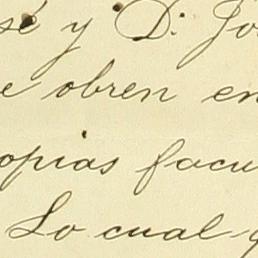 sé y D. Jo
e obren en
opias facu
Lo cual q